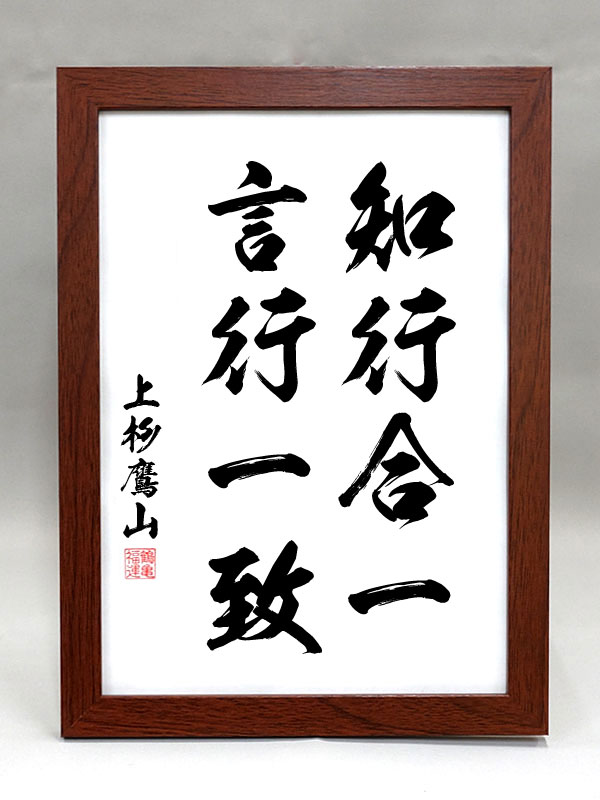 知行合一
言行一致
上杉鷹山
鶴亀
福運